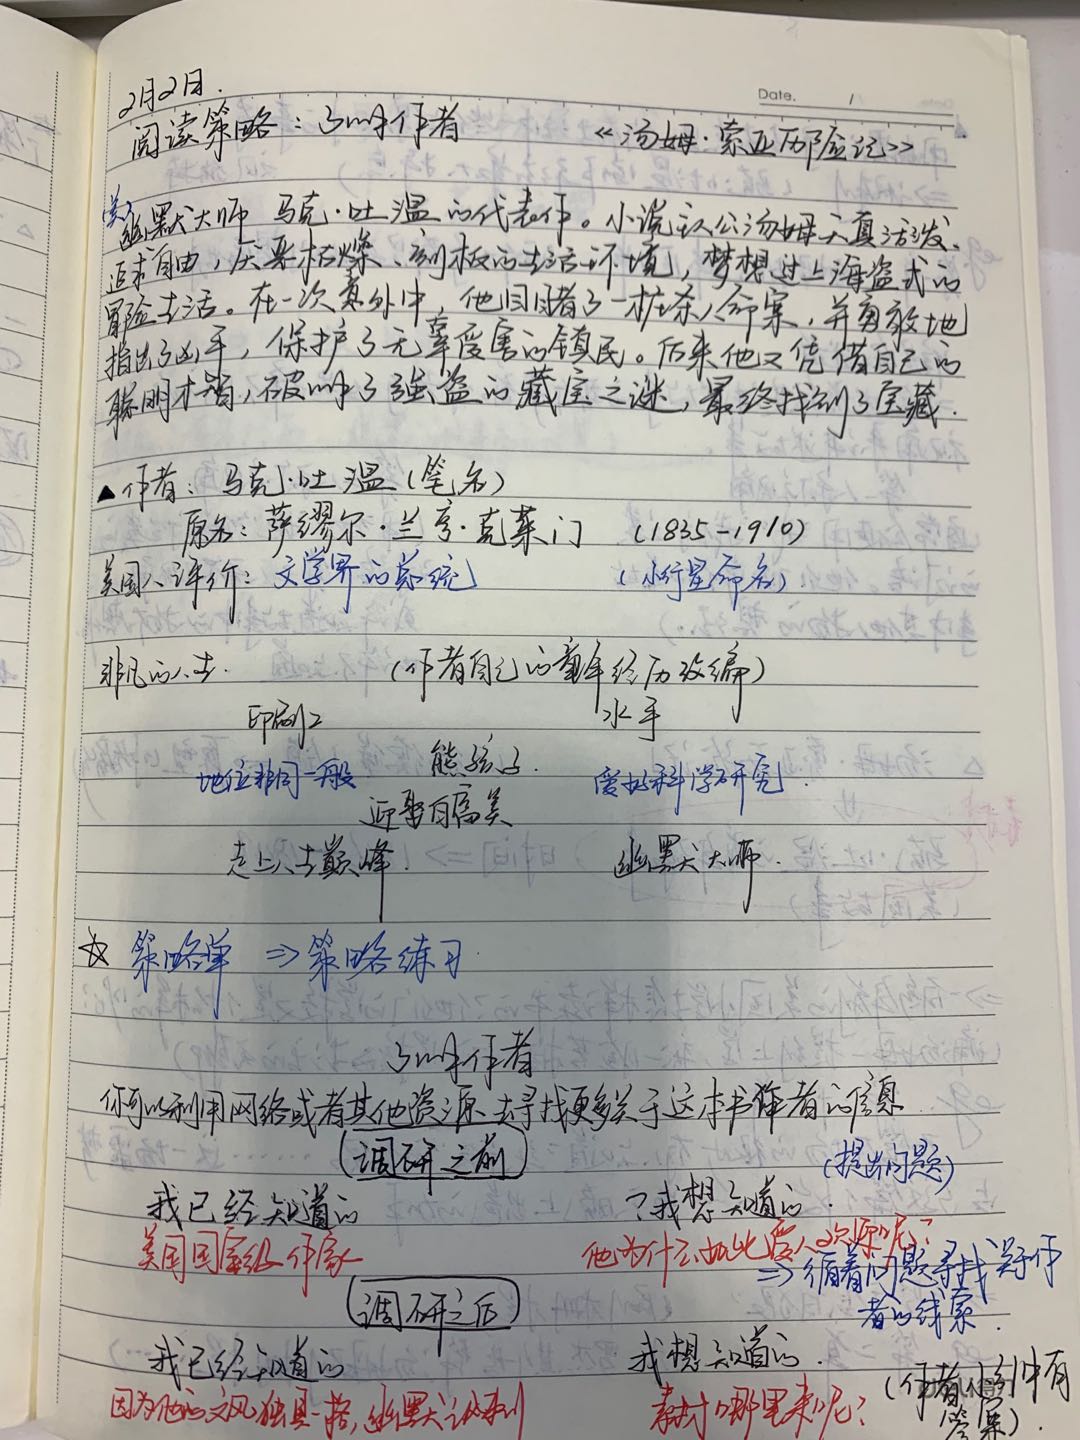 2月2日.
Date. /
阅读策略：了解作者 《汤姆·索亚历险记》
(美)
幽默大师 马克·吐温的代表作。小说主人公汤姆天真活泼、
追求自由，厌恶枯燥、刻板的生活环境，梦想过上海盗式的
冒险生活。在一次意外中，他目睹了一桩杀人命案，并勇敢地
指出了凶手，保护了无辜受害的镇民。后来他又凭借自己的
聪明才智，破解了强盗的藏宝之谜，最终找到了宝藏.
▲作者：马克·吐温(笔名)
原名：萨缪尔·兰亨·克莱门 (1835-1910)
美国人评价：文学界的总统 (小行星命名)
非凡的人生. (作者自己的童年经历改编)
印刷工 水手
地位非同一般 熊孩子. 爱好科学研究.
迎娶白富美
走上人生巅峰. 幽默大师.
☆ 策略单 ⇒策略练习.
了解作者
你可以利用网络或者其他资源去寻找更多关于这本书作者的信息.
调研之前 (提出问题)
我已经知道的 ？我想知道的.
美国国宝级作家 他为什么如此受人欢迎呢？
⇒循着问题寻找写作
者的线索.
调研之后
我已经知道的 我想知道的.
(作者小引中有
答案).
因为他的文风独具一格，幽默又犀利 素材哪里来呢？